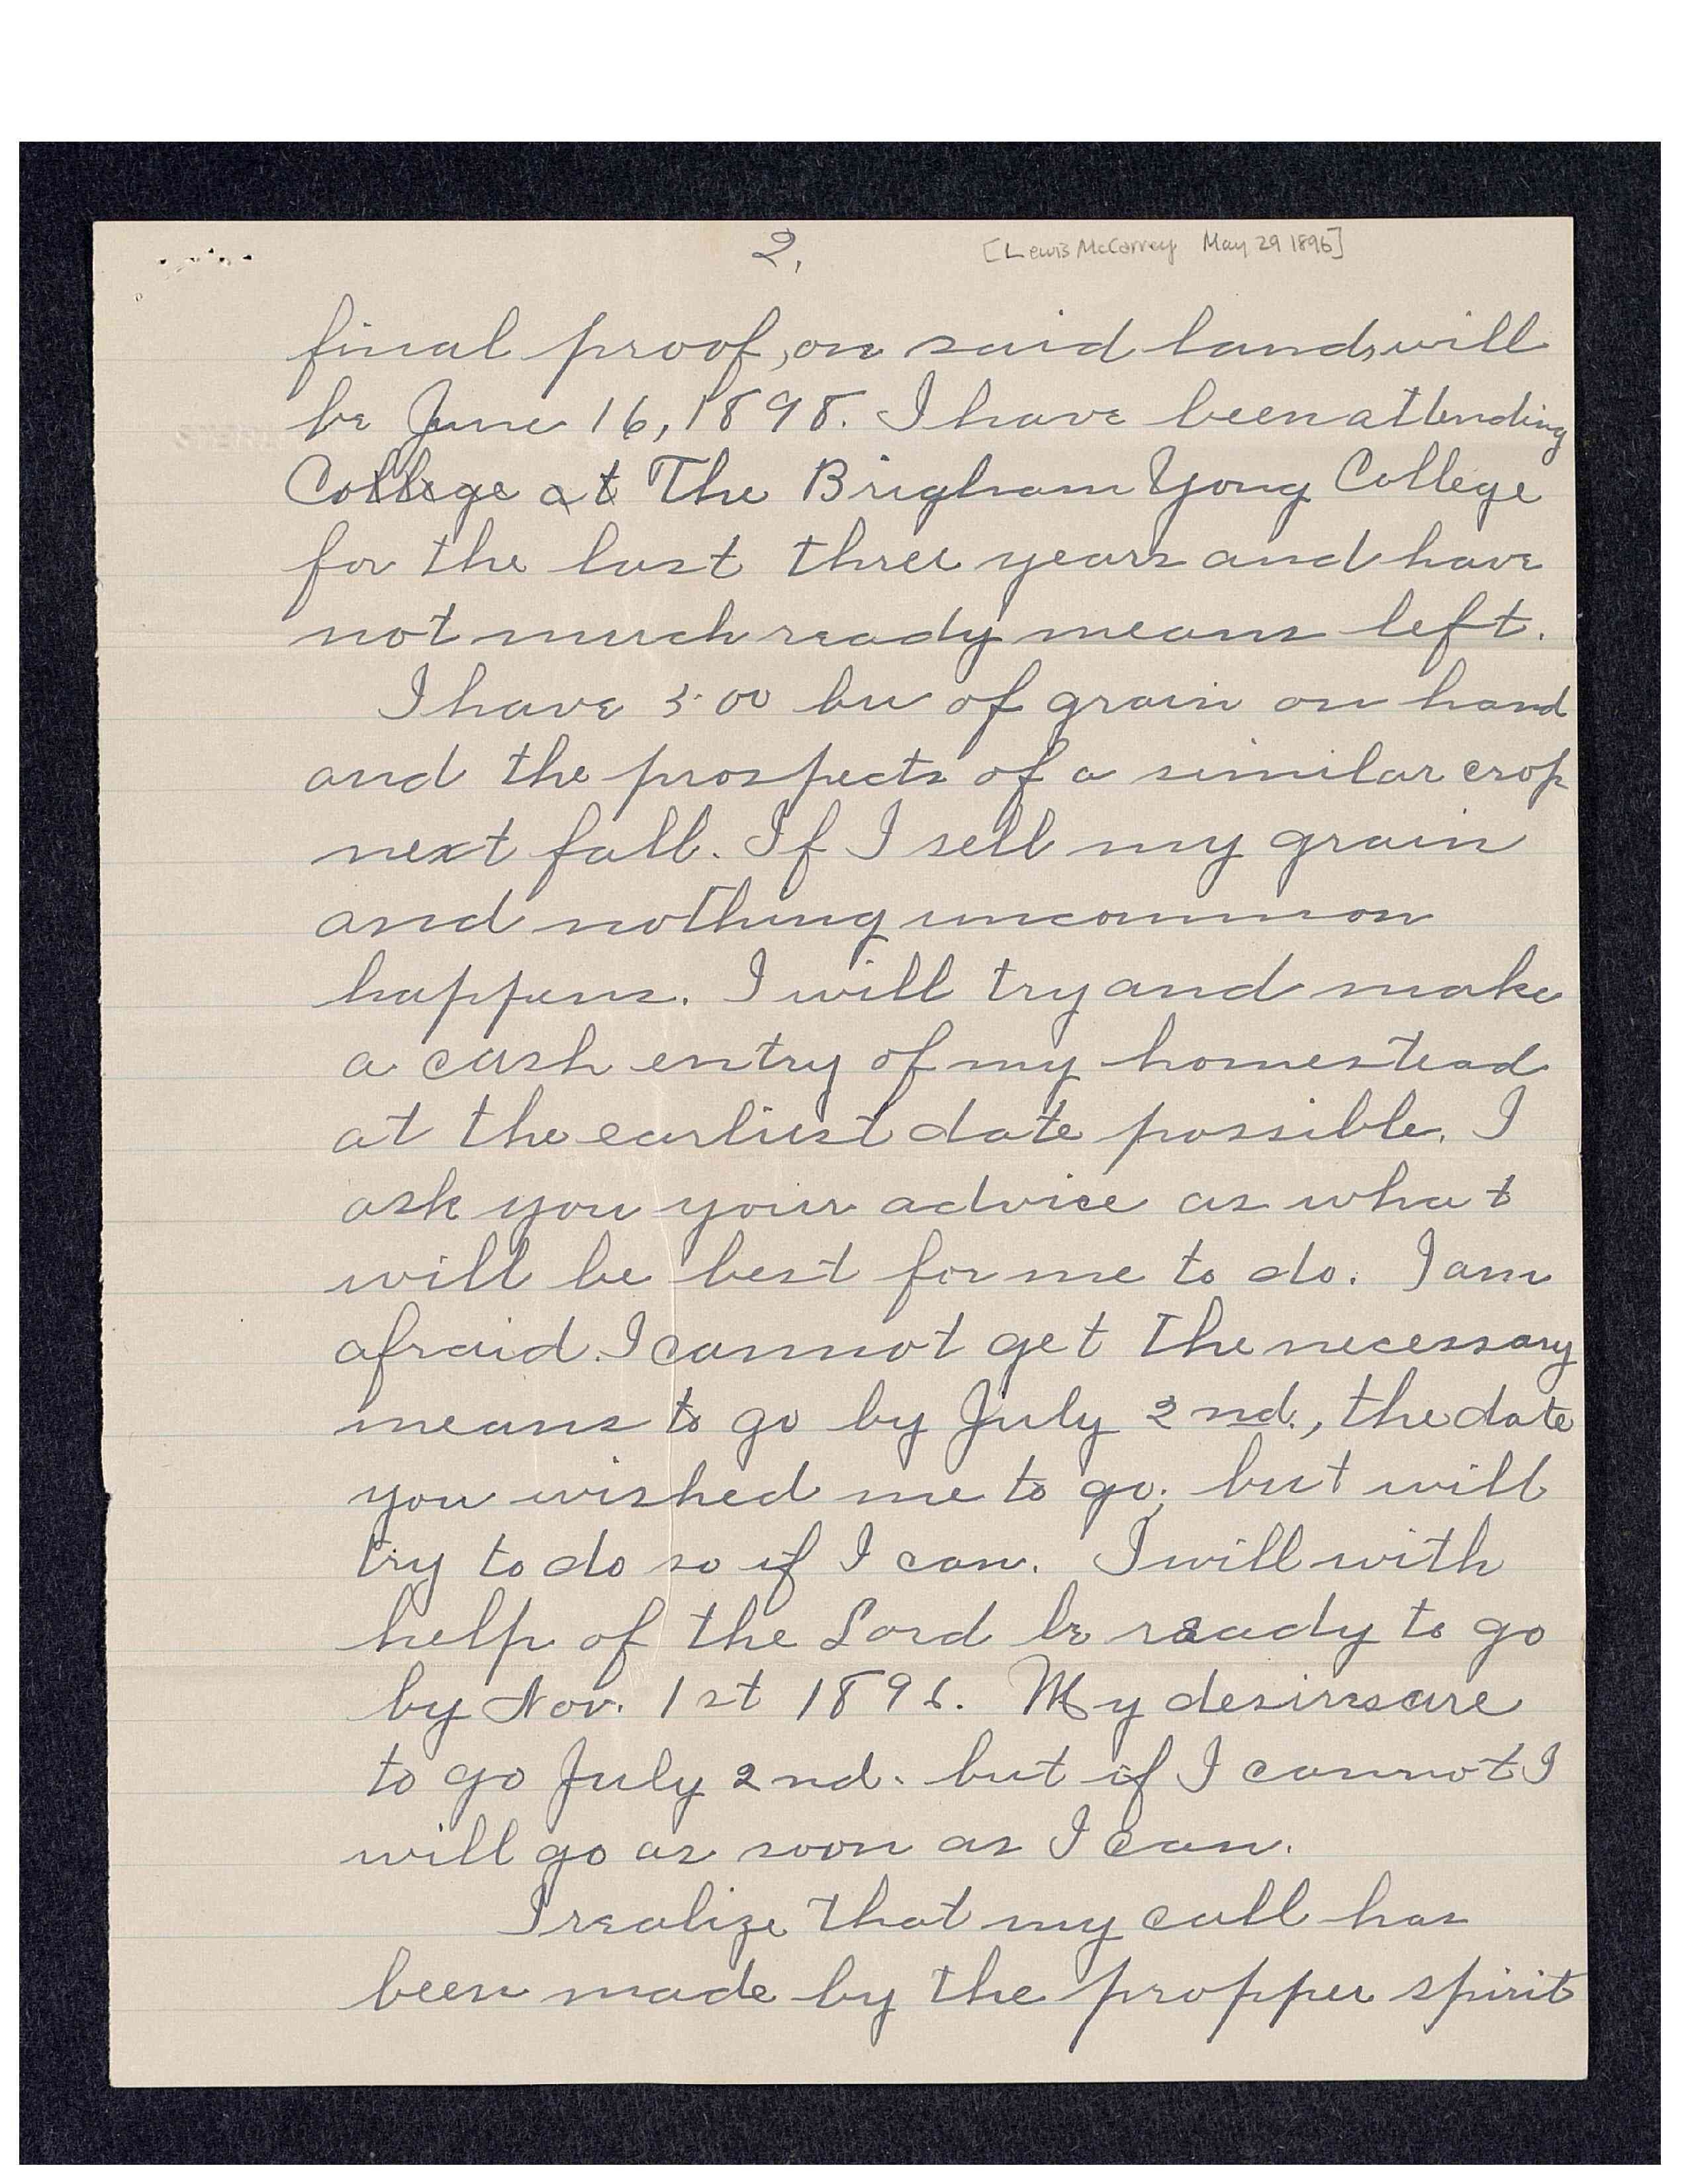 2.
[Lewis McCarrey May 29 1896]
final proof, on said land, will
be June 16, 1898. I have been attending
College at The Brigham Yong College
for the last three years and have
not much ready means left.
I have 500 bu of grain on hand
and the prospects of a similar crop
next fall. If I sell my grain
and nothing uncommon
happens. I will try and make
a cash entry of my homestead
at the earliest date possible. I
ask you your advice as what
will be best for me to do. I am
afraid I cannot get the necessary
means to go by July 2nd., the date
you wished me to go; but will
try to do so if I can. I will with
help of the Lord be ready to go
by Nov. 1st 1896. My desires are
to go July 2nd. but if I cannot I
will go as soon as I can.
I realize that my call has
been made by the propper spirit